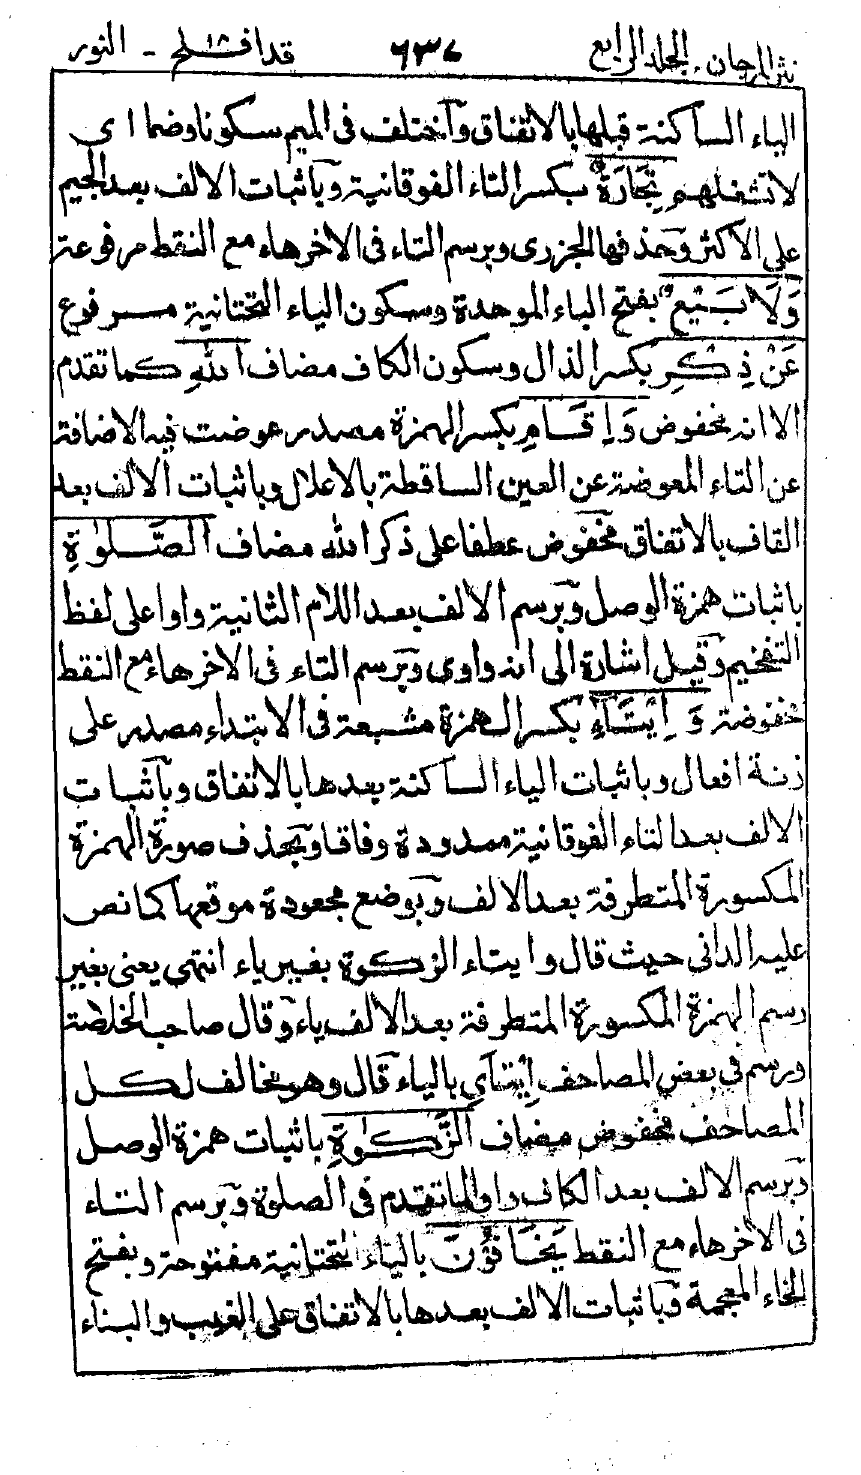 نثر المرجان ـ الجلد الرابع ٦٣٧ قد افلح ١٨ ـ النور
الياء الساكنة قبلها بالاتفاق وآختلف فى الميم سكونا وضما اى
لا تشغلهم تِجَارَةٌ بكسر التاء الفوقانية وبآثبات الالف بعد الجيم
على الاكثر وحذفها الجزرى وبرسم التاء فى الاخر هاء مع النقط مرفوعة
وَلَا بَيْعٌ بفتح الباء الموحدة وسكون الياء التحتانية مرفوع
عَنْ ذِكْرِ بكسر الذال وسكون الكاف مضاف اللّٰهِ كما تقدم
الا انه مخفوض وَاِقَامِ بكسر الهمزة مصدر عوضت فيه الاضافة
عن التاء المعوضة عن العين الساقطة بالاعلال وباثبات الالف بعد
القاف بالاتفاق مخفوض عطفا على ذكر الله مضاف الصَّلوٰةِ
باثبات همزة الوصل وبرسم الالف بعد اللام الثانية واوا على لفظ
التفخيم وقيل اشارة الى انه واوى وبرسم التاء فى الاخر هاء مع النقط
مخفوضة وَاِيْتَآءِ بكسر الهمزة مشبعة فى الابتداء مصدر على
زنة افعال وباثبات الياء الساكنة بعدها بالاتفاق وبآثبات
الالف بعد التاء الفوقانية ممدودة وفاقا وبحذف صورة الهمزة
المكسورة المتطرفة بعد الالف وبوضع مجعودة موقعها كما نص
عليه الدانى حيث قال وايتاء الزكوة بغير ياء انتهى يعنى بغير
رسم الهمزة المكسورة المتطرفة بعد الالف ياء وقال صاحب الخلاصة
ورسم فى بعض المصاحف اِيْتَآىِ بالياء قال وهو مخالف لكل
المصاحف مخفوض مضاف الزَّكوٰةِ باثبات همزة الوصل
وبرسم الالف بعد الكاف واوا لما تقدم فى الصلوة وبرسم التاء
فى الاخر هاء مع النقط يَخَافُوْنَ بالياء التحتانية مفتوحة وبفتح
الخاء المعجمة وباثبات الالف بعدها بالاتفاق على الغيب والبناء